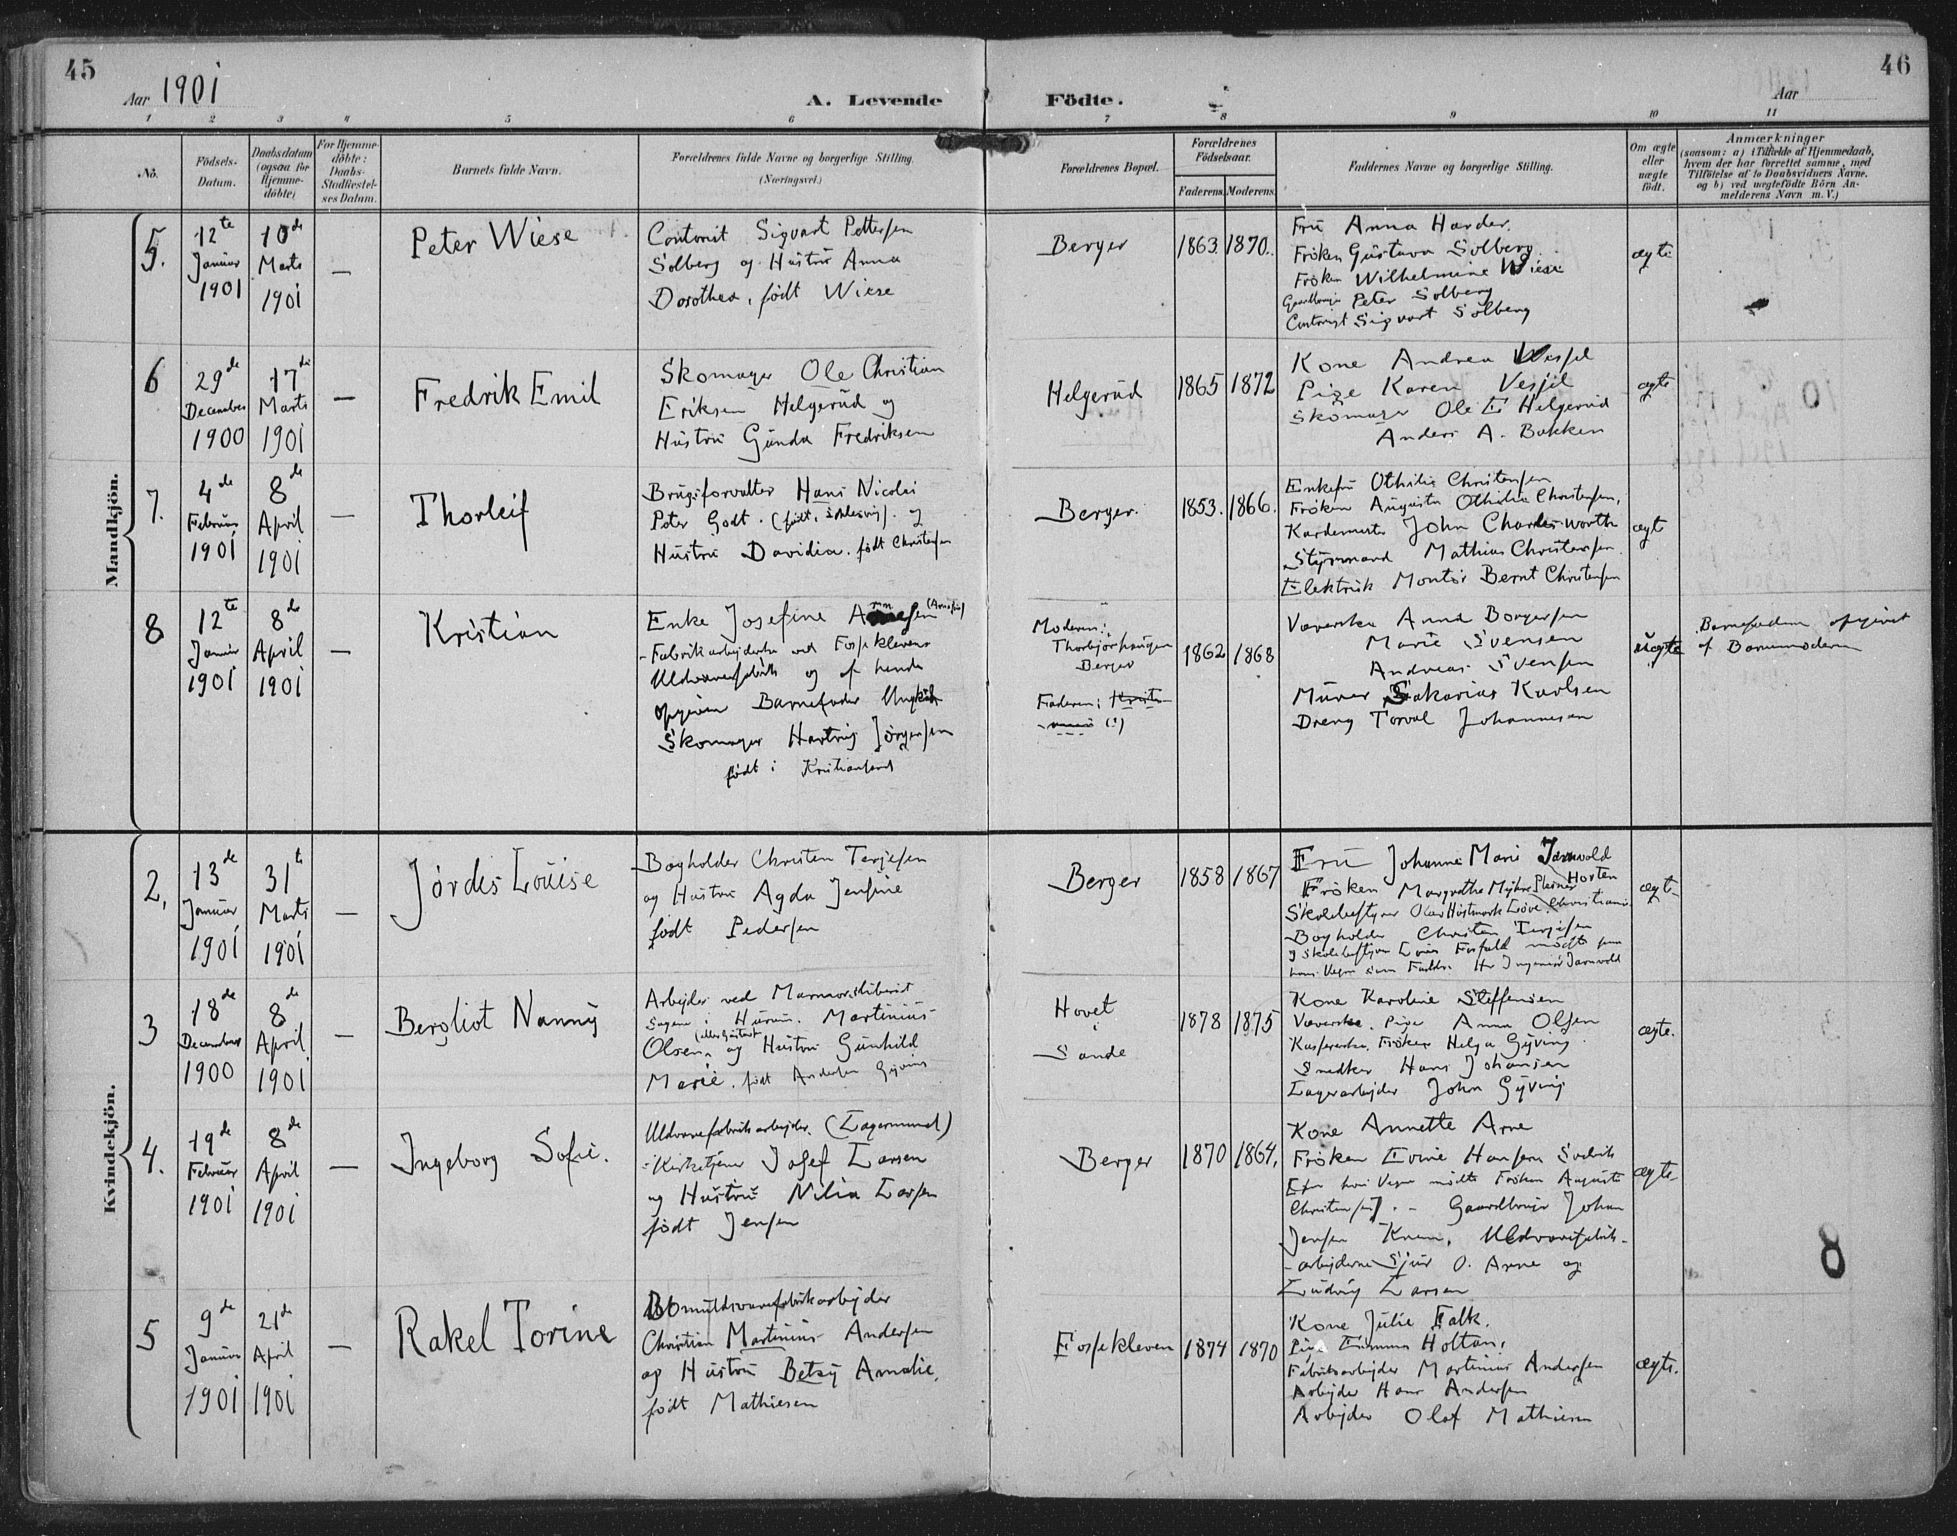 45
Aar 1901
A. Levende
Födte.
Aar
46
1
2
3
4
5
6
7
8
9
10
11
No.
Födsels-
Datum.
Daabsdatum
(ogsaa for
Hjemme-
döbte)
For Hjemme-
döbte:
Daabs-
Stadfæstel-
ses Datum.
Barnets fulde Navn.
Forældrenes fulde Navne og borgerlige Stilling.
(Næringsvei.)
Forældrenes Bopæl.
Forældrenes
Födselsaar.
Faderens.
Moderens.
Faddernes Navne og borgerlige Stilling.
Om ægte
eller
uægte
födt.
Anmærkninger
(saasom: a) i Tilfælde af Hjemmedaab,
hvem der har forrettet samme, med
Tilföielse af to Daabsvidners Navne.
og b) ved uægtefödte Börn An-
melderens Navn m. V.)
Mandkjön.
5.
12te
Januar
1901
10de
Marts
1901
—
Peter Wiese
Contorist Sigvart Pettersen
Solberg og Hustru Anna
Dorothea, født Wiese
Berger
1863
1870.
Fru Anna Harder.
Frøken Gustava Solberg
Frøken Wilhelmine Wiese
Peter Solberg
Contorist Sigvart Solberg
ægte
6
29de
December
1900
17de
Marts
1901
—
Fredrik Emil
Skomager Ole Christian
Eriksen Helgerud og
Hustru Gunda Fredriksen
Helgerud
1865
1872
Kone Andrea Wessel
Pige Karen Vessel
Skomager Ole E Helgerud
Anders A. Bakken
ægte
7.
4de
Februar
1901
8de
April
1901
—
Thorleif
Brugsforvalter Hans Nicolai
Peter Godt. (født i Schlesvig). og
Hustru Davidia. født Christensen
Berger.
1853.
1866.
Enkefru Othilie Christensen
Frøken Augusta Othilie Christensen,
Kardemester John Charlesworth
Styrmand Mathias Christensen.
Elektrisk Montør Bernt Christensen
ægte
8
12te
Januar
1901
8de
April
1901
—
Kristian
Enke Josefine
Fabrikarbeiderske ved Fossekleven
Uldvarefabrik og af hende
opgiven Barnefader Ungkarl
Skomager Hartvig Jörgensen
født i Kristiansand
Moderen:
Thorbjørhaugen
Berger
Faderen:
(?)
1862
1868
Væverske Anna Borgersen
Marie Svensen
Andreas Svensen
Murer Sakarias Karlsen
Dreng Torval Johannesen
uægte
Barnefaderen opgivet
af Barnemoderen
Kvindekjön.
2,
13de
Januar
1901
31te
Marts
1901
—
Jørdis Louise
Bogholder Christen Terjesen
og Hustru Agda Jensine
født Pedersen
Berger
1858
1867
Fru Johanne Marie Jarnvold
Horten
Frøken Margrethe Myhre
Skolebestyrer Christiania
Bogholder Christen Terjesen
Ingeniør Jarnvold
ægte
3
18de
December
1900
8de
April
1901
—
Bergliot Nanny
Arbejder ved Marmorsliberiet
Martinius
Olsen, og Hustru Gunhild
Marie. født Andersen Gyving
Hovet
i
Sande
1878
1875
Kone Karoline Steffensen
Væverske. Pige Anna Olsen
Frøken Helga Gyving
Snedker Hans Johansen
Lagerarbejder John Gyving
ægte.
4.
19de
Februar
1901
8de
April
1901
—
Ingeborg Sofie.
Uldvarefabrikarbejder. (Lagermand)
Kirketjener Josef Larsen
og Hustru Nilia Larsen
født Jensen
Berger
1870
1864.
Kone Annette Arne
Frøken Hansen
mødte Frøken Augusta
Christensen). - Gaardbruger Johan
Jensen Uldvarefabrik-
-arbejderne Sjur O. Arne og
Ludvig Larsen
ægte
5
9de
Januar
1901
21de
April
1901
—
Rakel Torine
Bomuldsvarefabrikarbejder
Christian Martinius Andersen
og Hustru Betsy Amalie,
født Mathiesen
Fossekleven
1874
1870
Kone Julie Falk.
Pige Emma Holtan.
Fabrikarbejder Martinius Andersen
Arbejder Hans Andersen
Arbejder Olaf Mathiesen
ægte.